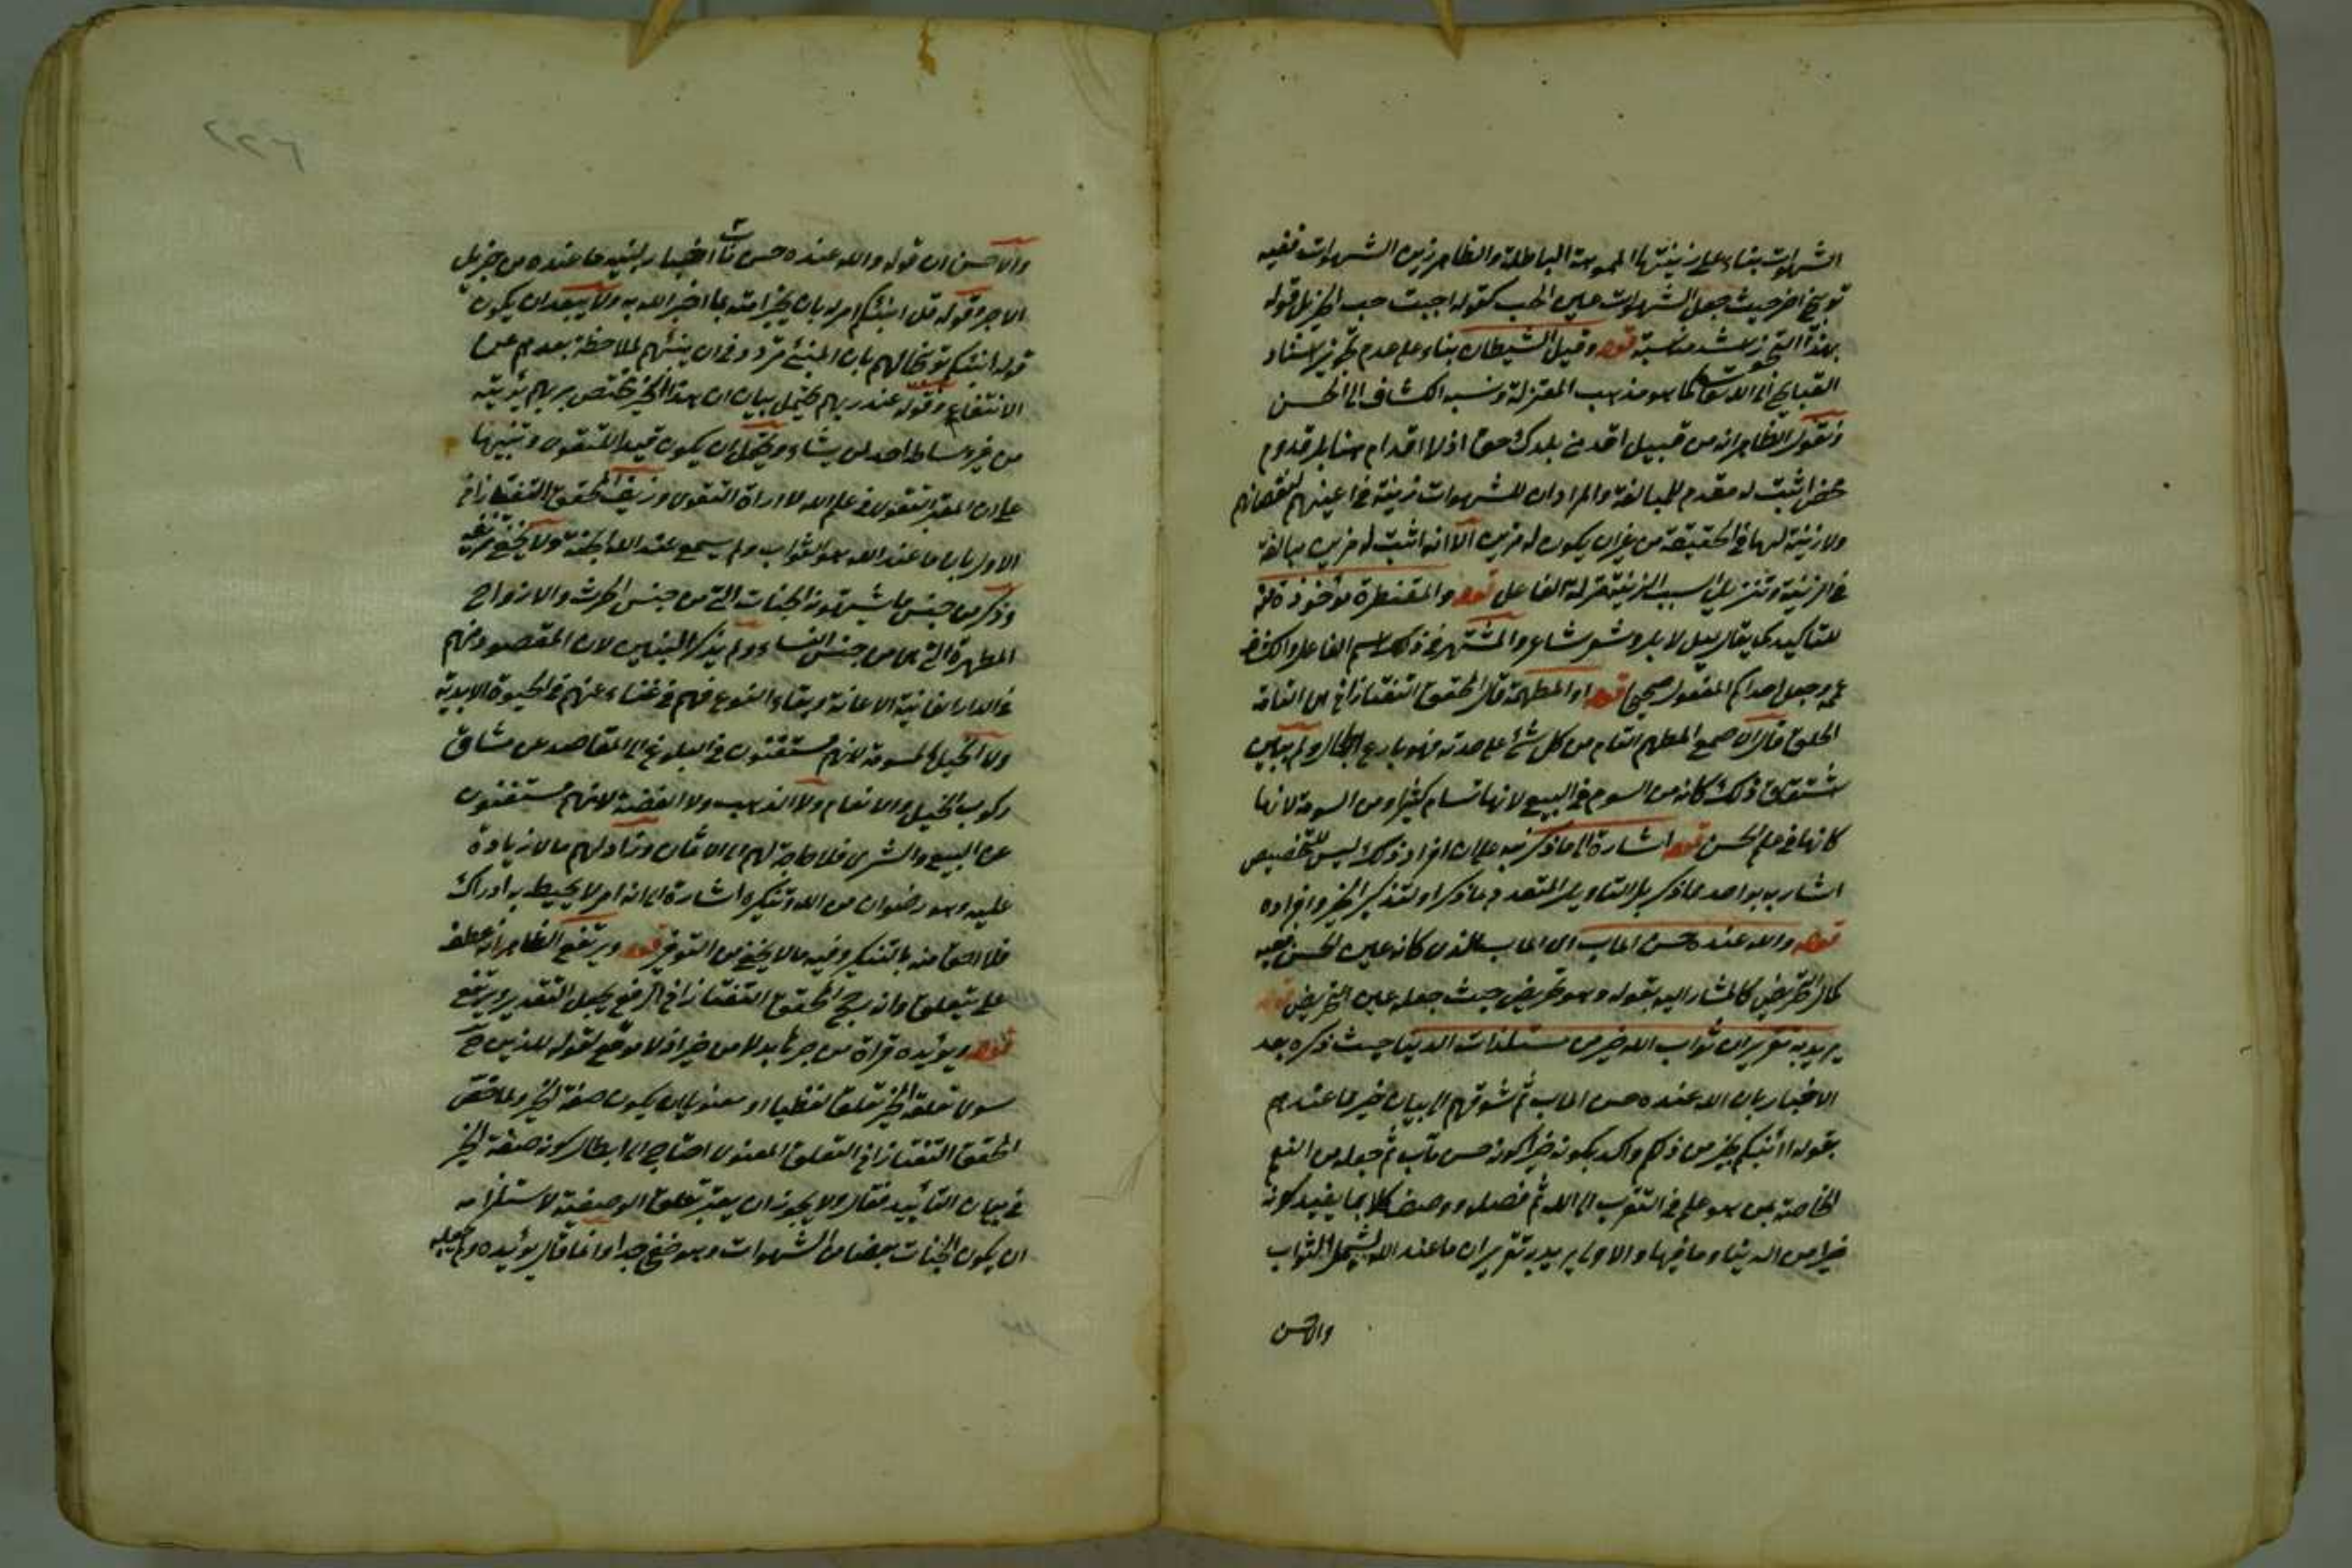 الشهوات بناء على زينتها المموهة الباطلة والظاهر زين الشهوات ففيه
توبيخ اخر حيث جعل الشهوات عين الحب كقوله احببت حب الخير بل قوله
بهذا اشد مناسبة قوله وقيل الشيطان بناء على عدم تجويز اسناد
القبايح الى الله تعالى كما هو مذهب المعتزلة ونسبه الكشاف الى الحسن
ونقول الظاهر انه من قبيل اقدمني بلدك حق اذ لا اقدام هنا بل قدوم
محض اثبت له مقدم للمبالغة والمراد ان للشهوات زينة في اعينهم لنقصانهم
ولا زينة لها في الحقيقة من غير ان يكون له مزين الا انه اثبت له مزين مبالغة
في الزينة وتنزيل سبب الزينة منزلة الفاعل قوله والمقنطرة مأخوذة منه
للتاكيد كما يقال ليل لايل وشعر شاعر والمشتهر في ذلك اسم الفاعل والكشاف
عمم وجعل احدكم المفعول صحيحا قوله او المطهمة قال المحقق التفتازاني اى التامة
الخلق قال الاصمعي المطهم التام من كل شئ على حدته فهو بارع الجمال ولم يبين
اشتقاق ذلك كانه من السوم في البيع لانها تسام كثيرا ومن السومة لانها
كانها في علم الحسن قوله اشارة الى ما ذكر نبه على ان افراد ذلك ليس لتخصيص
اشار به بواحد مما ذكر بل لتاويل المتعدد بما ذكر او لتذكير الخبر وافراده
قوله والله عنده حسن المآب اى المآب الذى كانه عين الحسن ففيه
كمال التحريض كالمشار اليه بقوله وهو تحريض حيث جعله عين التحريض قوله
يريد به تقرير ان ثواب الله خير من مستلذات الدنيا حيث ذكره بعد
الاخبار بان الله عنده حسن المآب ثم شوقهم الى بيان خير مما عندهم
بقوله اؤنبئكم بخير من ذلكم واكد بكونه خيرا كونه حسن مآب ثم جعله من النعم
الخاصة بمن هو علم في التقرب الى الله ثم فصله ووصف كلا بما يفيد كونه
خيرا من الدنيا وما فيها والاولى يريد به تقرير ان ما عند الله يشمل الثواب
والاحسن
والاحسن ان قوله والله عنده حسن مآب اخبار يفيد ما عنده من جزيل
الاجر وقوله قل اؤنبئكم امر له بان يخبر امته بما اخبر الله به ولا يبعد ان يكون
قوله اؤنبئكم توبيخا لهم بان المنبئ متردد في ان ينبئهم لملاحظة بعدهم عن
الانتفاع وقوله عند ربهم يحتمل بيان ان هذا الخير مختص بربهم يؤتيه
من غير وساطة احد لمن يشاء ويحتمل ان يكون قيدا للمتقون وتنبيها
على ان المعتبر التقوى في علم الله لا اراة التقوى وزيف المحقق التفتازاني
الاول بان ما عند الله هو الثواب ولم يسمع عند الله الجنة ولا يخفى
وذكر من جنس ما يشتهونه الجنات التي من جنس الحرث والازواج
المطهرة التي هي من جنس النساء ولم يذكر البنين لان المقصود منهم
في الدار الفانية الاعانة وبقاء النوع فهم في غناء عنهم في الحيوة الابدية
ولا الخيل المسومة لانهم مستغنون في البلوغ الى المقاصد عن مشاق
ركوب الخيل والانعام ولا الذهب ولا الفضة لانهم مستغنون
عن البيع والشرى فلا حاجة لهم الى الاثمان وزاد لهم ما لا زيادة
عليه وهو رضوان من الله وتنكيره اشارة الى انه امر لا يحيط به ادراك
فلا احق منه بالتنكير وفيه ما لا يخفى من التوفير قوله ويرتفع الظاهر انه عطف
على يتعلق وانه رجح المحقق التفتازاني الرفع بجعل التقدير ويرتفع
قوله ويؤيده قراة من جر بدلا من خير اذ لا موقع لقوله للذين ح
سوى تعلقه الخير تعلقا لفظيا او معنويا بان يكون صفة الخير ولما خص
المحقق التفتازاني التعلق المعنوى احتاج الى ابطال كونه صفة الخير
في بيان التأييد فقال ولا يجوز ان يعتبر تعلق الوصفية لاستلزامه
ان يكون الجنات بعضا من الشهوات وهو ضخ جدا وانما قال يؤيده ولم يجعله